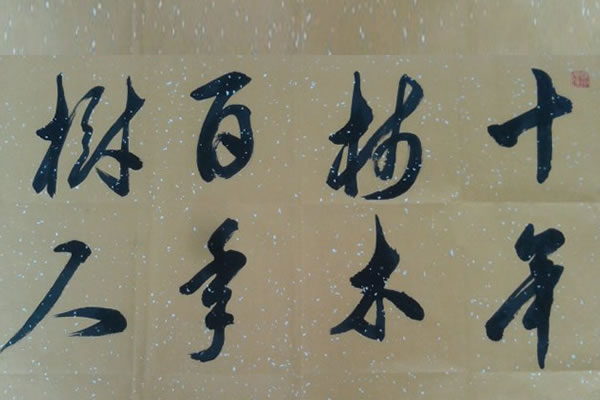 十年
树木
百年
树人